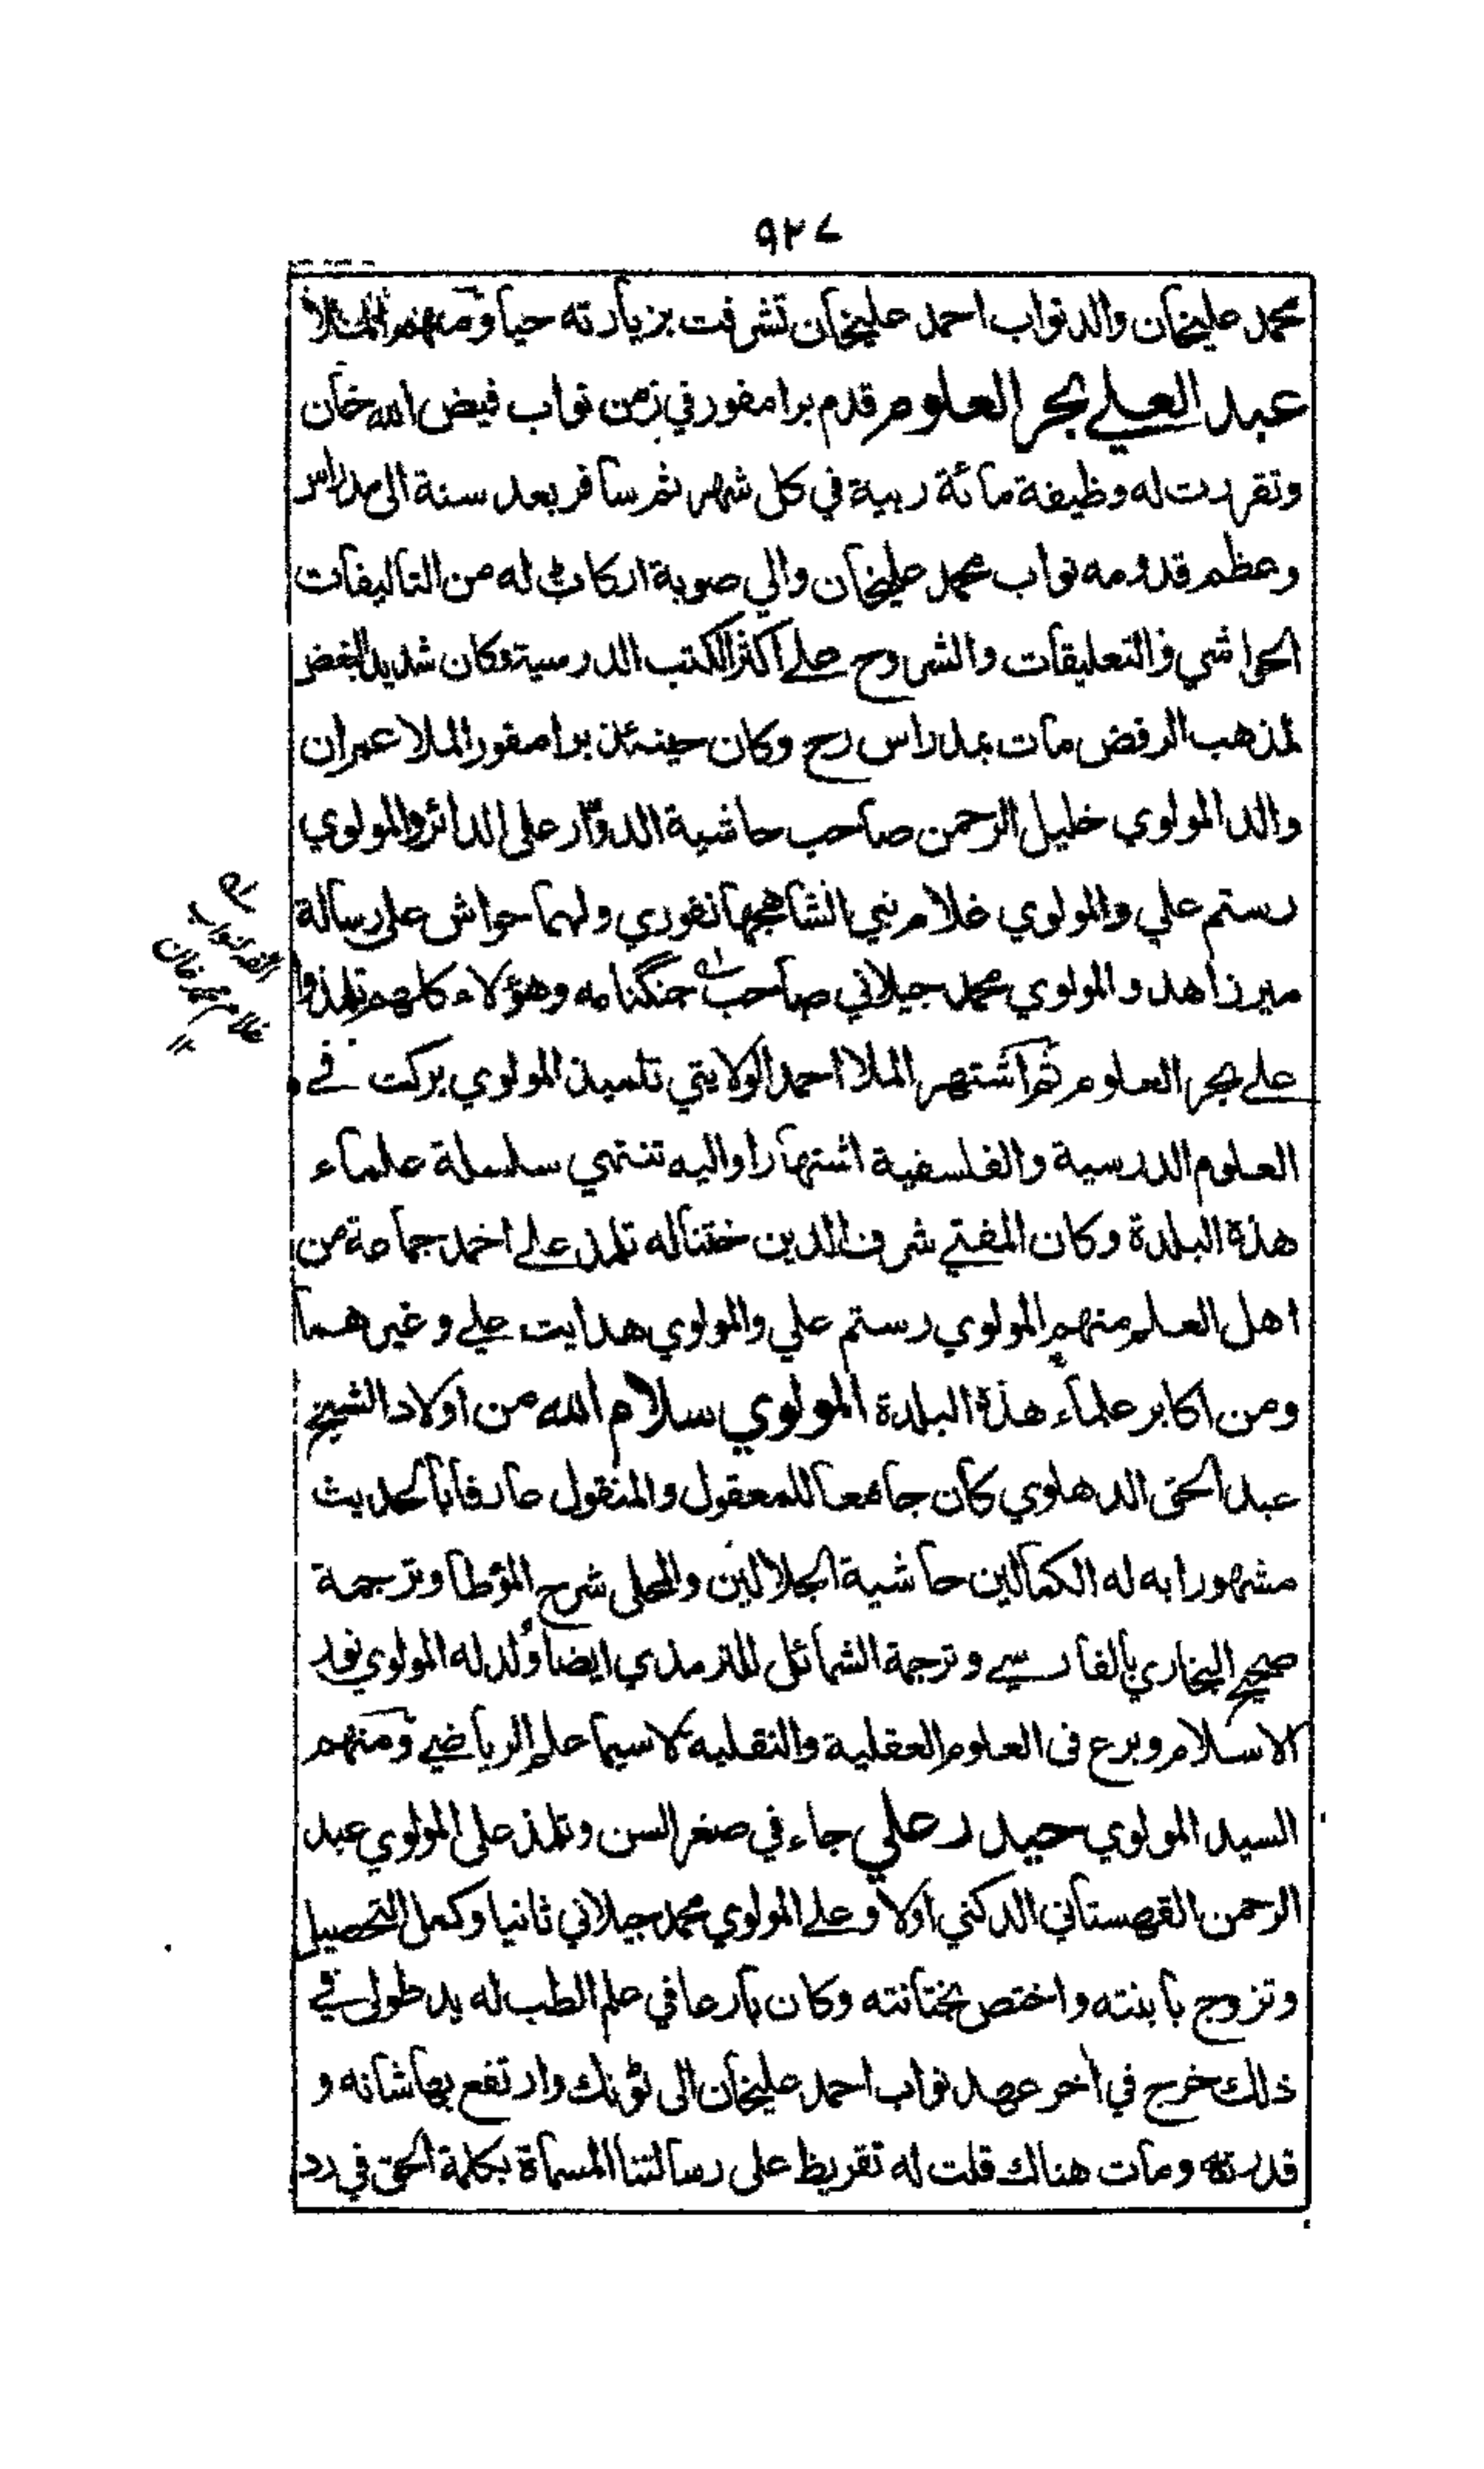 ٩٢٧
محمد عليخان والد نواب احمد عليخان تشرفت بزيارته حيا ومنهم الملا
عبد العلي بحر العلوم قدم برامفور في زمن نواب فيض الله خان
وتقررت له وظيفة مائة ربية في كل شهر ثم سافر بعد سنة الى مدراس
وعظم قدومه نواب محمد عليخان والي صوبة اركاٹ له من التاليفات
الحواشي والتعليقات والشروح على اكثر الكتب الدرسية وكان شديد البغض
لمذهب الرفض مات بمدراس رح وكان حينئذ برامفور الملا عمران
والد المولوي خليل الرحمن صاحب حاشية الدوّار على الدائر والمولوي
رستم علي والمولوي غلام نبي الشاهجهانفوري ولهما حواش على رسالة
ميرزاهد والمولوي محمد جيلاني صاحب جنگنامه وهؤلاء كلهم تلمذوا
على بحر العلوم ثم اشتهر الملا احمد الولايتي تلميذ المولوي بركت في
العلوم الدرسية والفلسفية اشتهارا واليه تنتهي سلسلة علماء
هذة البلدة وكان المفتي شرف الدين ختنا له تلمذ على احمد جماعة من
اهل العلم منهم المولوي رستم علي والمولوي هدايت علي وغيرهما
ومن اكابر علماء هذة البلدة المولوي سلام الله من اولاد الشيخ
عبد الحق الدهلوي كان جامعا للمعقول والمنقول عارفا بالحديث
مشهورا به له الكمالين حاشية الجلالين والمحلى شرح المؤطا وترجمة
صحيح البخاري بالفارسي وترجمة الشمائل للترمذي ايضا وُلد له المولوي نور
الاسلام وبرع فى العلوم العقلية والنقليه لاسيما علم الرياضي ومنهم
السيد المولوي حيدر علي جاء في صغر السن وتلمذ على المولوي عبد
الرحمن القهستاني الدكني اولا وعلى المولوي محمد جيلاني ثانيا وكمل التحصيل
وتزوج بابنته واختص بختانته وكان بارعا في علم الطب له يد طولى في
ذلك خرج في اٰخر عهد نواب احمد عليخان الى ٹونك وارتفع بها شانه و
قدرته ومات هناك قلت له تقريظ على رسالتنا المسماة بكلمة الحق في رد